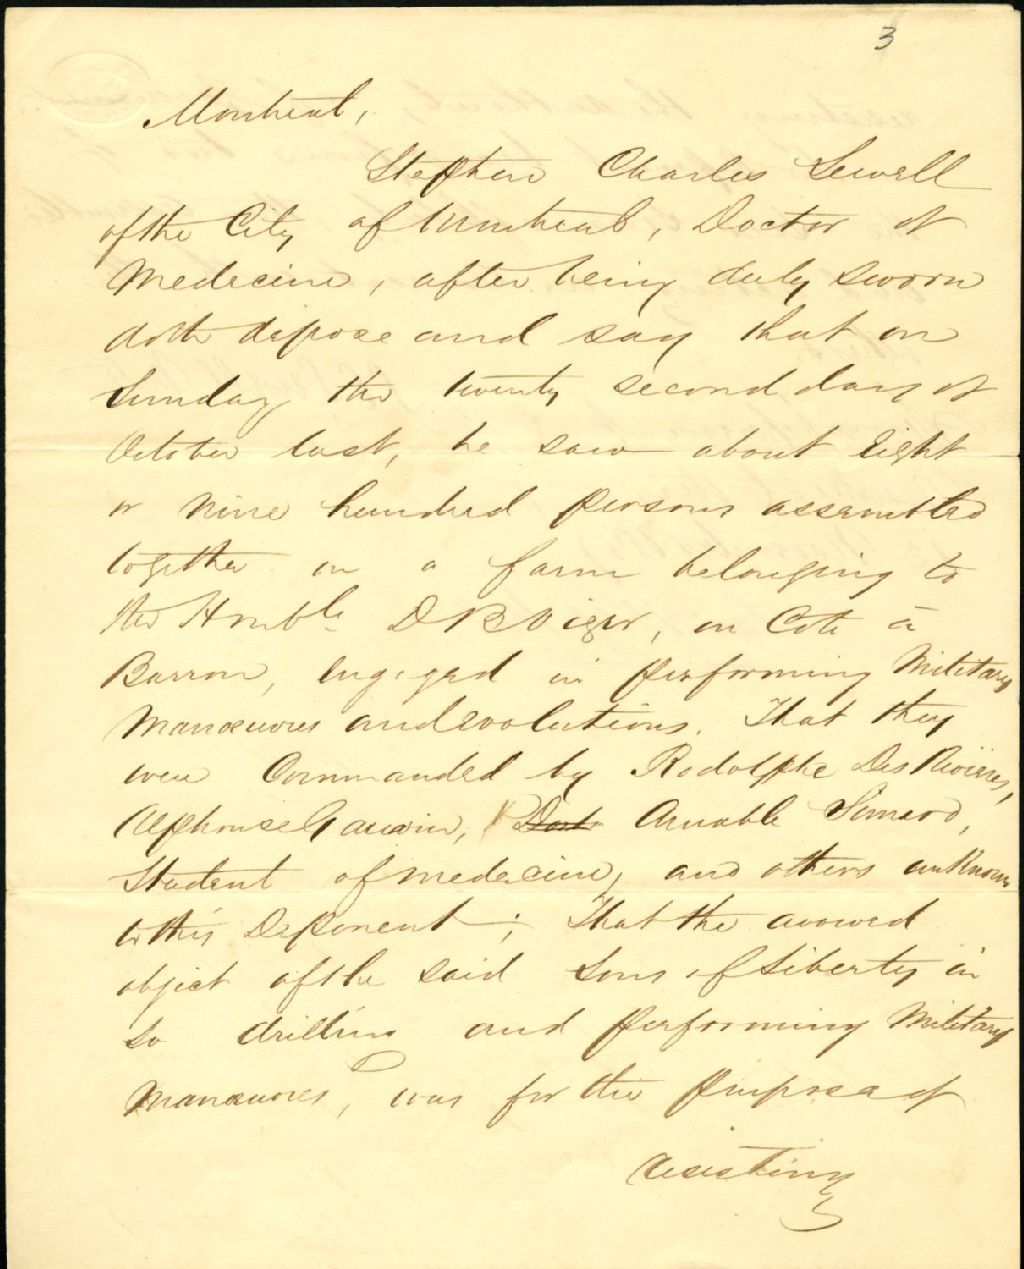 3
Montreal,
Stephen Charles Sewell
of the City of Montreal, Doctor of
Medecine, after being duly sworn
doth depose and say that on
Sunday the twenty second day of
October last, he saw about Eight
or Nine hundred persons assembled
together on a farm belonging to
the Honble D B Viger, on Cote à
Barron, engaged in performing Military
Manœuvres and Evolutions. That they
were Commanded by Rodolphe Des Rivieres,
Alphonse Gauvin, Doct Amable Simard,
Student of medecine, and others unknown
to this Deponent; That the avowed
object of the said Sons of Liberty in
so drilling and performing Military
Manœuvres, was for the purpose of
resisting